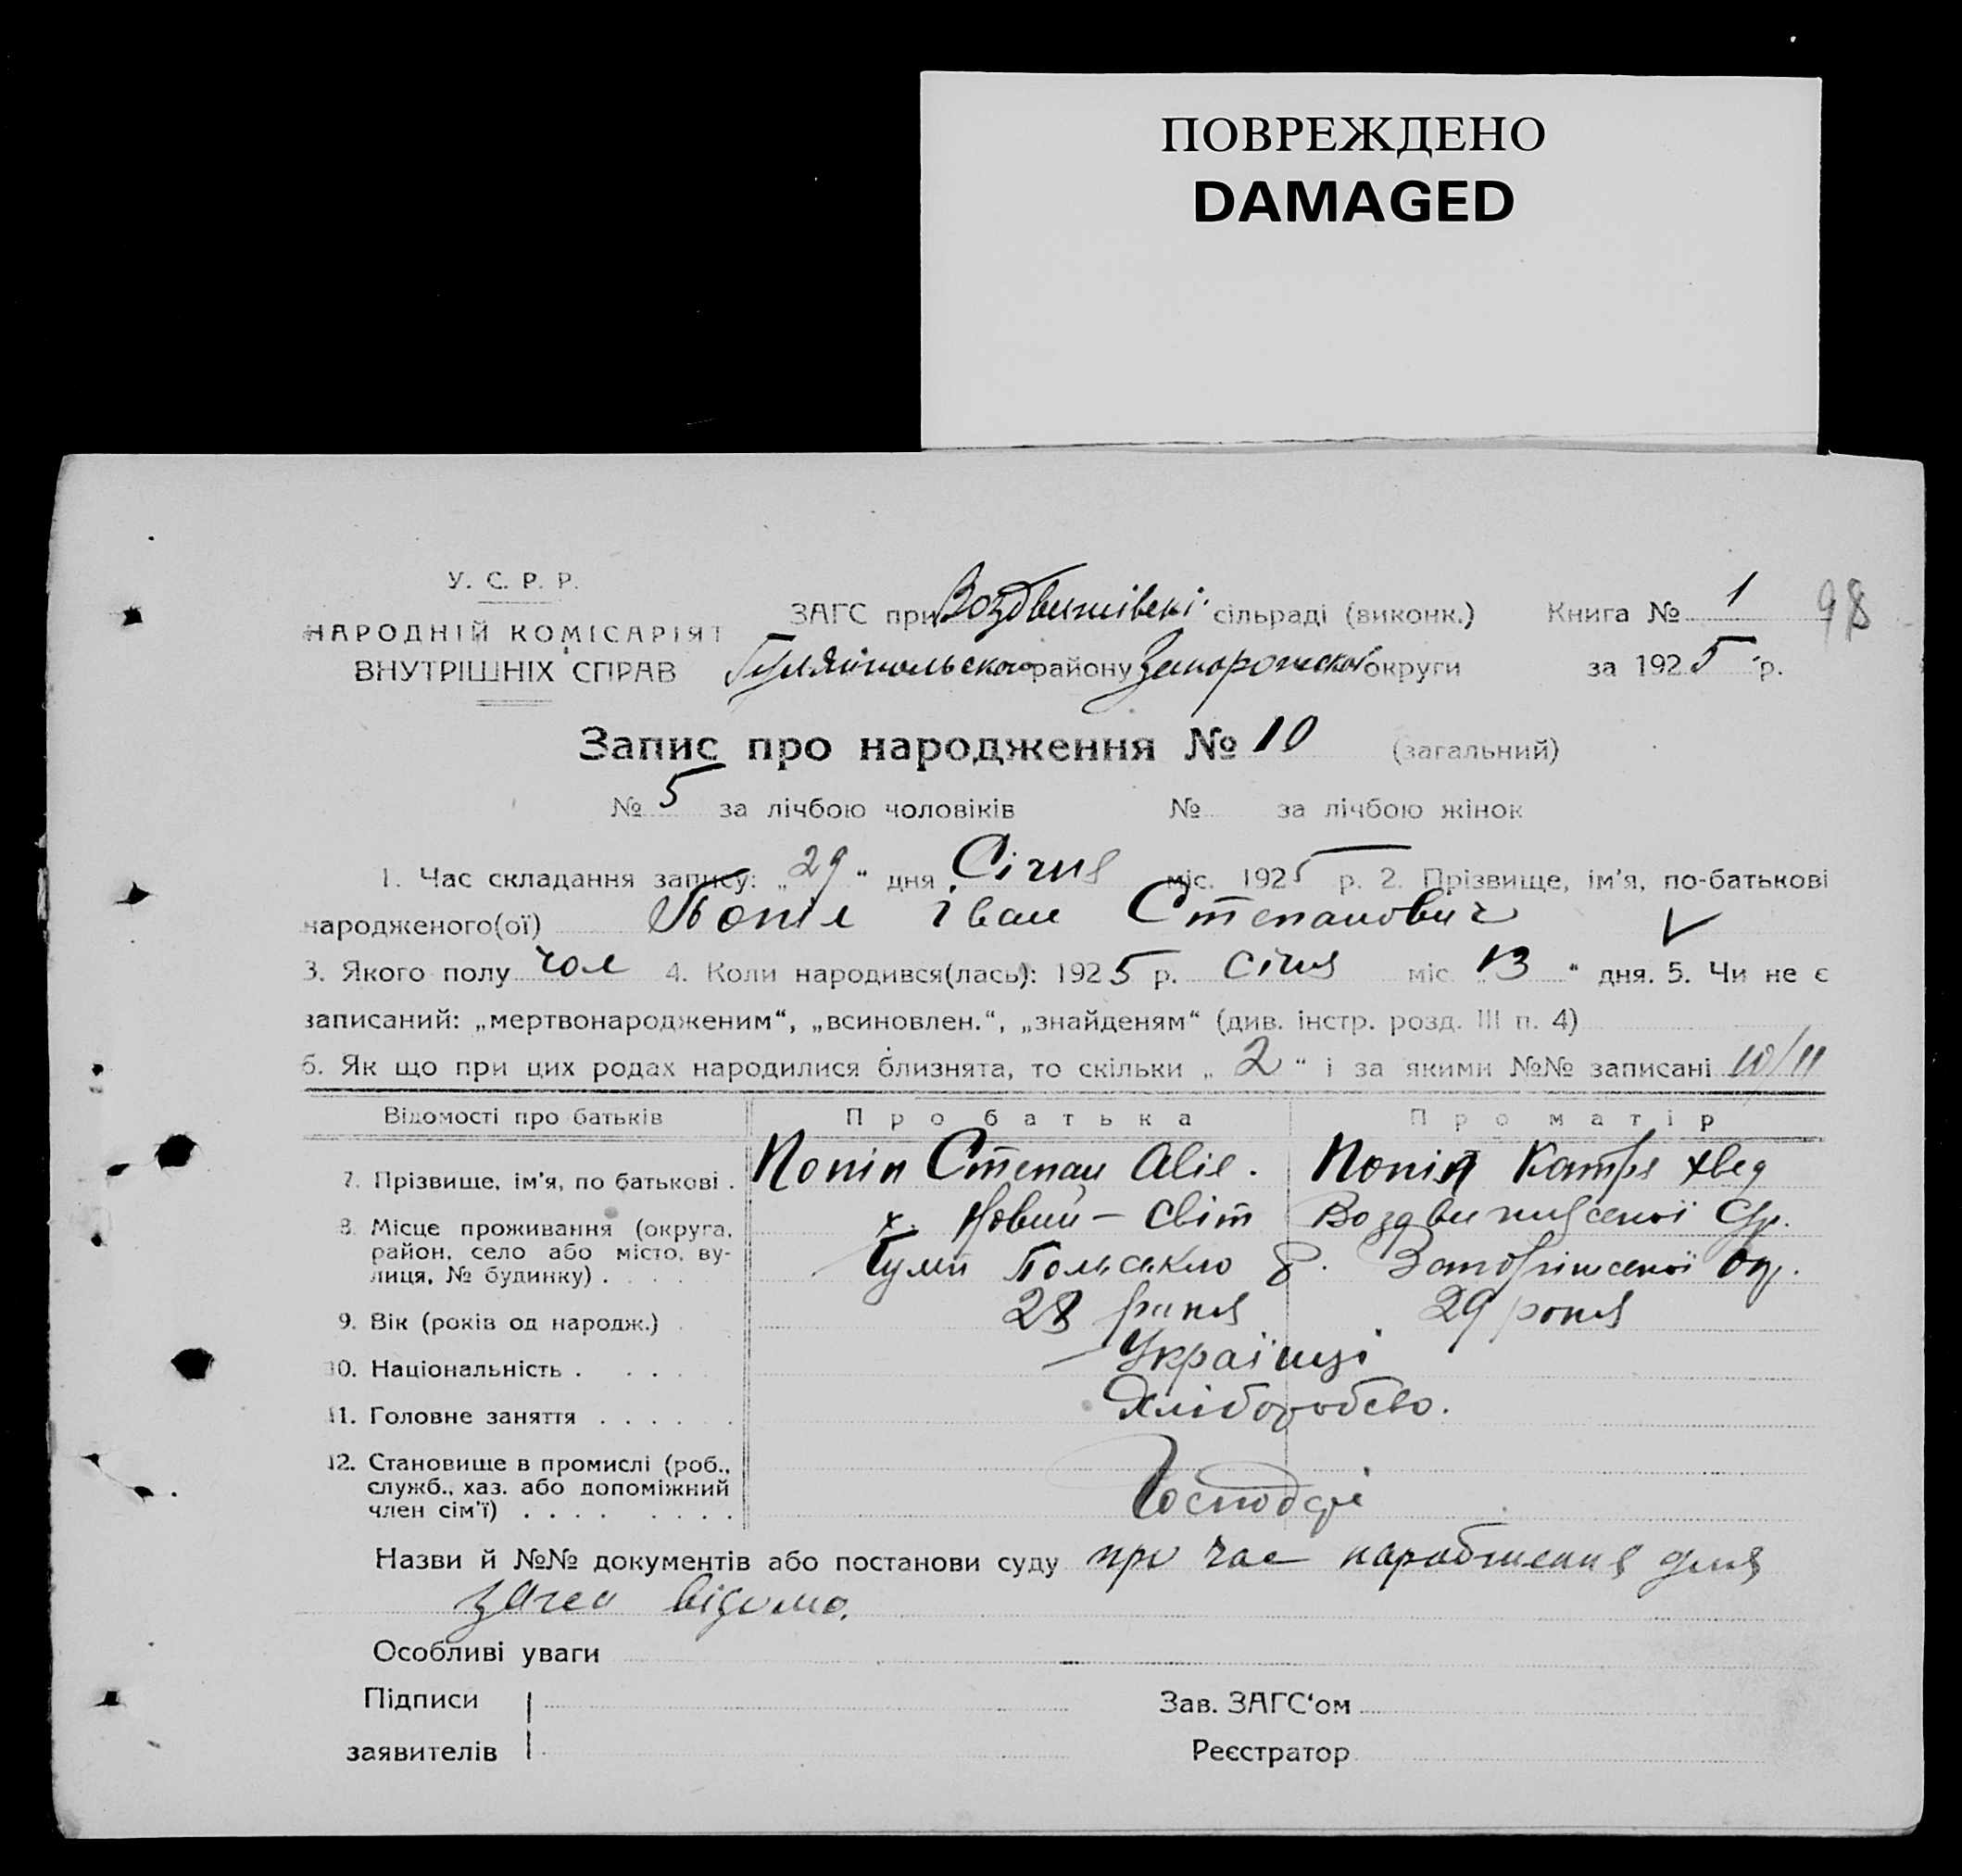 ПОВРЕЖДЕНО
DAMAGED
У. С. Р. Р.
НАРОДНІЙ КОМІСАРІЯТ
ВНУТРІШНІХ СПРАВ
ЗАГС при Воздвижівскі сільраді (виконк.) Книга № 1 98
Гуляйпольського району Запорожскої округи за 1925 р.
Запис про народження № 10 (загальний)
№ 5 за лічбою чоловіків № за лічбою жінок
1. Час складання запису: „29“ дня Січня міс. 1925 р. 2. Прізвище, ім'я, по-батькові
народженого(ої) Попіл Іван Степанович
3. Якого полу чол 4. Коли народився(лась): 1925 р. січня міс. „13“ дня. 5. Чи не є
записаний: „мертвонародженим“, „всиновлен.“, „знайденям“ (див. інстр. розд. III п. 4)
6. Як що при цих родах народилися близнята, то скільки „2“ і за якими №№ записані 10/11
Відомості про батьків Про батька Про матір
7. Прізвище, ім'я, по батькові . Попіл Степан Попіл Катря Хвед
8. Місце проживання (округа, х. Новий – Світ
район, село або місто, ву- Гуляй Польсько р. Запоріжської окр.
лиця, № будинку) . . . .
9. Вік (років од народж.) . 28 років 29 років
10. Національність . . . . . Українці
11. Головне заняття . . . . . Хліборобство.
12. Становище в промислі (роб.,
служб., хаз. або допоміжний Господарі
член сім'ї) . . . . . . . .
Назви й №№ документів або постанови суду про час народження для
загса відомо.
Особливі уваги
Підписи Зав. ЗАГС'ом
заявителів Реєстратор